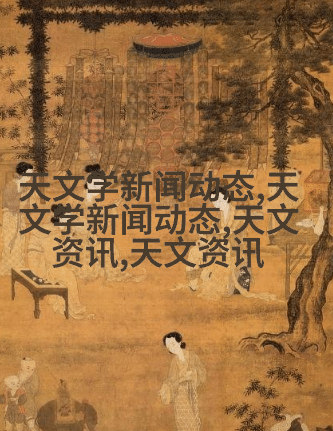 天文学新闻动态,天
文学新闻动态,天文
资讯,天文资讯